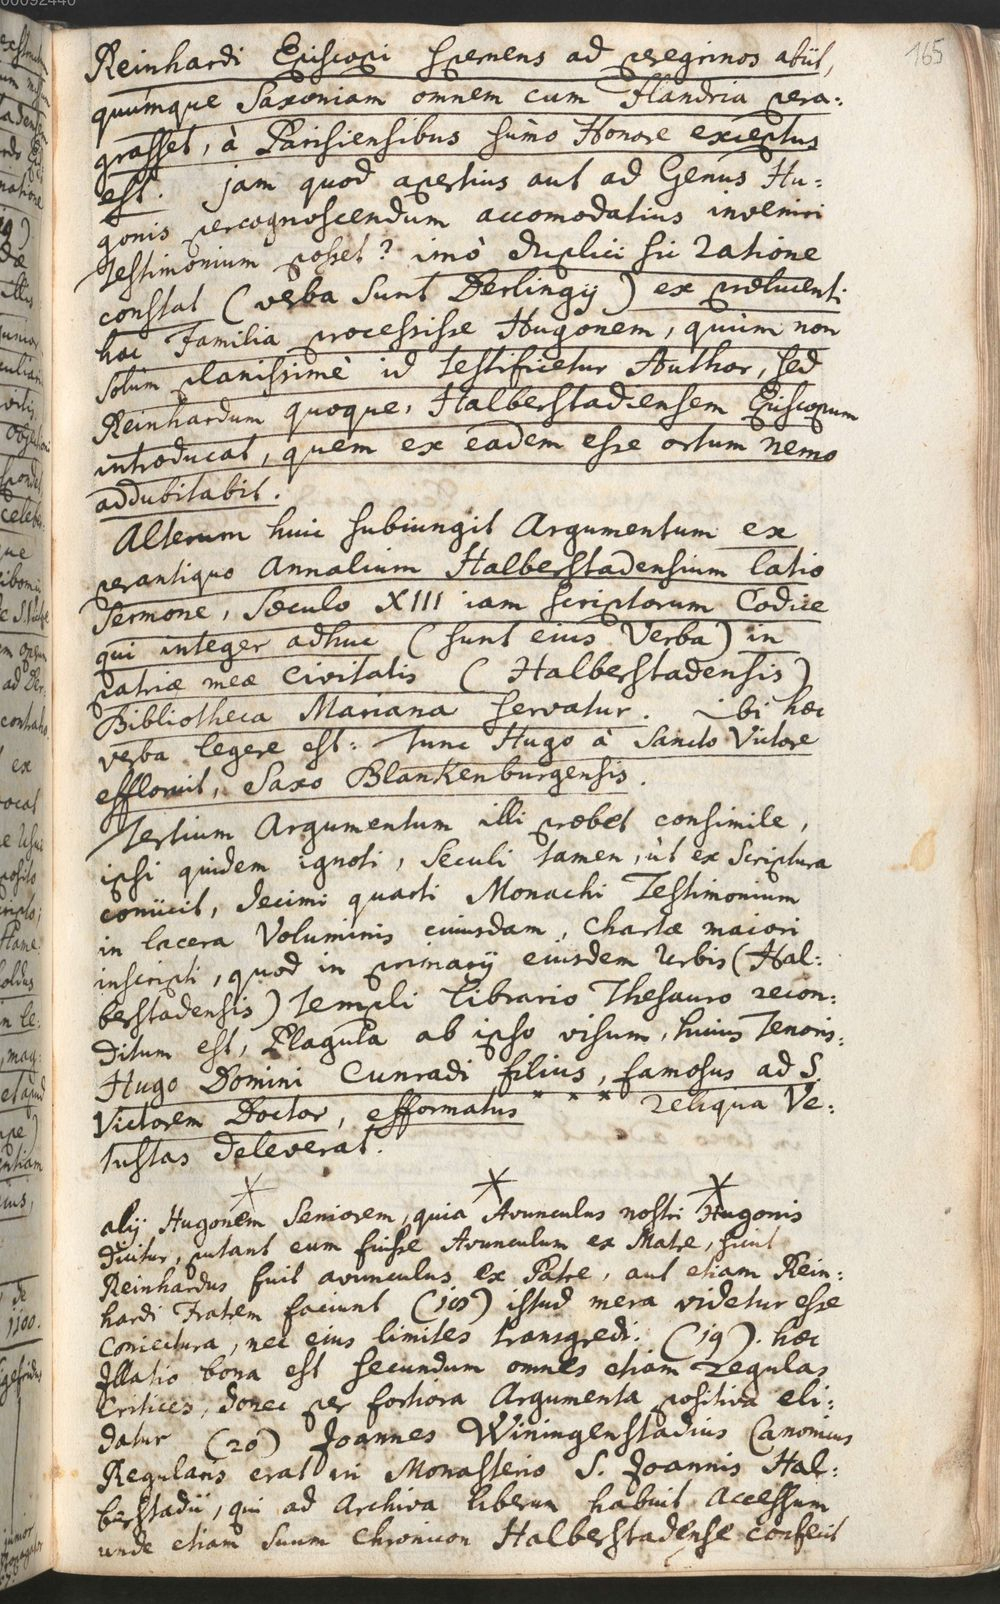 165
Reinhardi Episcopi spernens ad peregrinos abiit,
quumque Saxoniam omnem cum Flandria pera:
grasset, à Parisiensibus sum̄o Honore exceptus
est. jam quod apertius aut ad Genus Hu:
gonis percognoscendum accomodatius inveniri
Testimonium posset? imò duplici sic ratione
constat (verba sunt Derlingij) ex prælucenti
hac Familia processisse Hugonem, quum non
solùm planissimè id testificetur Author, sed
Reinhardum quoque, Halberstadiensem Episcopum
introducat, quem ex eadem esse ortum nemo
addubitabit.
Alterum huic subiungit Argumentum ex
perantiquo Annalium Halberstadensium latio
Sermone, Sæculo XIII iam scriptorum Codice
qui integer adhuc (sunt eius Verba) in
patriæ meæ Civitatis (Halberstadensis)
Bibliotheca Mariana servatur. ibi hæc
verba legere est: Tunc Hugo à Sancto Victore
effloruit, Saxo Blankenburgensis.
Tertium Argumentum illi præbet consimile,
ipsi quidem ignoti, Seculi tamen, ùt ex Scriptura
coniicit, decimi quarti Monachi Testimonium
in lacera Voluminis cuiusdam, Chartæ maiori
inscripti, quod in primarij eiusdem Urbis (Hal:
berstadensis) Templi librario Thesauro recon:
ditum est, Plagula ab ipso visum, huius Tenoris:
Hugo Domini Cunradi filius, famosus ad S.
Victorem Doctor, efformatus * * * reliqua Ve:
tustas deleverat.
* * *
alij Hugonem Seniorem, quia Avunculus nostri Hugonis
dicitur, putant eum fuisse Avunculum ex Matre, sicut
Reinhardus fuit avunculus ex Patre, aut etiam Rein:
hardi Fratrem faciunt (18) istud mera videtur esse
coniectura, nec eius limites transgredi. (19). hæc
Illatio bona est secundum omnes etiam regulas
Critices, donec per fortiora Argumenta positiva eli:
datur (20) Joannes Winingenstadius Canonicus
Regularis erat in Monasterio S. Joannis Hal:
berstadii, qui ad Archiva liberum habuit Accessum
unde etiam suum Chronicon Halberstadense confecit